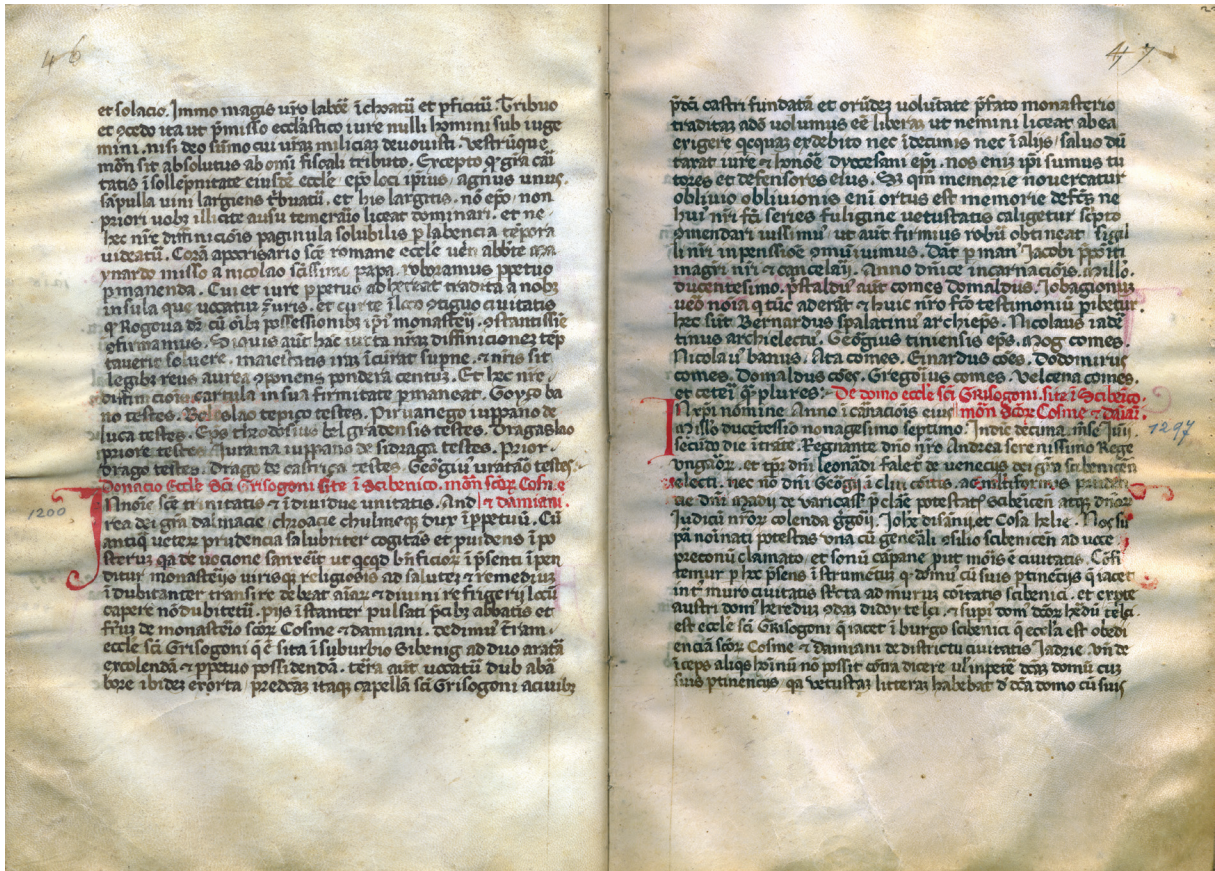 46
et solacio. Immo magis vr̄o labōe ī choatū et pficitū. Tribuo
et ꝯcedo ita ut p̄misso ecclāstico iure nulli homini sub iuge
mini. nisi deo sūmo cui vrā miliciā devovisti. vestrūque
mōn sit absolutus ab omī fiscali tributo. Excepto q gr̄a cāi
tatis ī sollēpnitate eiusdē eccłe epō loci ip̄ius agnus unus.
sapulla vini largiens t̄buatū. et his largitis. nō epō non
priori vob illicite ausu temerāio liceat dominari. et ne
hec nr̄e diffinicōis paginula solubilis p labencia tēpora
videatū. Corā apocrisario scē romane eccłe ven abbte ma
ynardo misso a nicolao scīssimo papa. roboramus ppetuo
pmanenda. Cui et iure ppetuo adhereat tradita a nob
insula que vocatur ȝuris. et curte ī loco ꝯtiguo civitatis
q Rogova dr̄ cū oīb possessionib ip̄i monastēij. ꝯstantissīe
ꝯfirmamus. Siquis aūt hāc iuxta nrām diffinicionez tēp
taverit solvere. maiestatis irā īcurāt supne. & nr̄is sit
legibȝ reus aurea ꝯponens pondera centuȝ. Et hec nr̄e
diffinicōis cartula in sua firmitate pmaneat. Goyco ba
no testes. Boleslao tepico testes. Piruanego iuppano de
luca testes. Eps theodosius belgradensis testes. Dragaslao
priore testes. Iuraina iuppano de sidraga testes. Prior
drago testes. Drago de castriça testes. Geōgiū vratāo testes.
Donacio Eccłe Scī Grisogoni site ī Scibenico. mōn scōꝝ Cosm̄e
& damiani.
1200
In noīe scē trinitatis & īdividue unitatis. And
rea dei grā dalmacie chroacie chulmeqȝ dux īppetuū. Cū
antiq̄ veteꝝ prudencia salubriter cogitās et pvidens ī po
steruȝ qa devocione sanxeīt ut qcqd bn̄ficioꝝ īpn̄ti īpen
ditur monastēijs virisq religiosis ad salutez & remediuȝ
īdubitanter transire debeat aīaꝝ & divini refrigerij locū
capere nō dubitetū. pijs īstanter pulsati p̄cibȝ abbatis et
frm̄ de monastēio scōꝝ Cosme & damiani. dedimꝰ t̄ram.
eccłe scī Grisogoni q ē sita ī suburbio Sibenig ad duo arata
excolendā & ppetuo possidendā. tēra aūt vocatū dub abā
bore ibidez exorta predcām itaqȝ capellā scī Grisogoni a civibȝ
47
p̄dcī castri fundatā et oꝝūdez volūtate p̄fato monasterio
traditaȝ adō volumus eē liberaȝ ut nemini liceat ab ea
exigere qcquaȝ ex debito nec ī decimis nec ī alijs / salvo dū
taxat iure & honōe dyocesani epī. nos eniȝ ipī sumus tu
tores et defensores eius. Sȝ qm̄ memorie novercatur
oblivio oblivionis enī ortus est memorie defcūs ne
huiꝰ nr̄i fcī series fuligine vetustatis caligetur scpto
ꝯmendari iussimꝰ ut aut firmius robū obtineat sigil
li nr̄i inpensiōe ꝯmunivimus. Dat p man Jacobi p̄poiti
magrī nr̄i & cancelarij. Anno dn̄ice incarnaciōis. Millo.
ducentesimo. p̄staldiꝰ aūt comes Domaldus. Jobagionuȝ
verō noīa q tūc aderāt & huic nr̄o fcō testimoniū phibetur
hec sūt. Bernardus spalatinꝰ archieps. Nicolaus iade
tinus archielectꝰ. Geōgius tiniensis eps. Mog comes
Nicolaꝰ banus. Ata comes. Einardus coēs. Dodomirus
comes. Domaldus coēs. Gregoīus comes. Velcena comes.
et ceteī q plures. De domo eccłe scī Grisogoni. site ī Scibeīco.
mōn scōꝝ Cosme & damiāi.
In xpī nomine. Anno īcarnaciōis eius
Millo ducētessio nonagesimo septimo. Indic decima. mse Iuīj
1297
secūdo die ītrāte. Regnante dn̄o nr̄o Andrea serenissimo Rege
vngaōꝝ. et tpr̄ dn̄i leonadi falet de veneciis dei gr̄a scibenicēn
electi. nec nō dn̄i Geōgij
cie dn̄i Madij de varicass p̄clāe potestatꝭ scibēicēn atqȝ dnōꝝ
Iudicū nr̄oꝝ colenda
pā noīnati potestas vna cū genēali ꝯsilio scibenicēn ad voce
preconū clamato et sonū cāpane put mōis ē civitatis. Cōfi
temur p hec p̄sens īstrumētuȝ q domꝰ cū suis ptinēciis q iacet
int muro civitatis
austri domꝰ heredum
est eccłe scī Grisogoni q iacet ī burgo scibenici q eccła est obedi
enciā scōꝝ Cosme & damiani de districtu civitatis Jadrie. Vn̄ de
īceps aliqs hoīnū nō possit cōtra dicere vł inpetē dcām domū cuȝ
suis ptinencijs qa vetustaȝ litteraȝ habebat d dcā domo cū suis